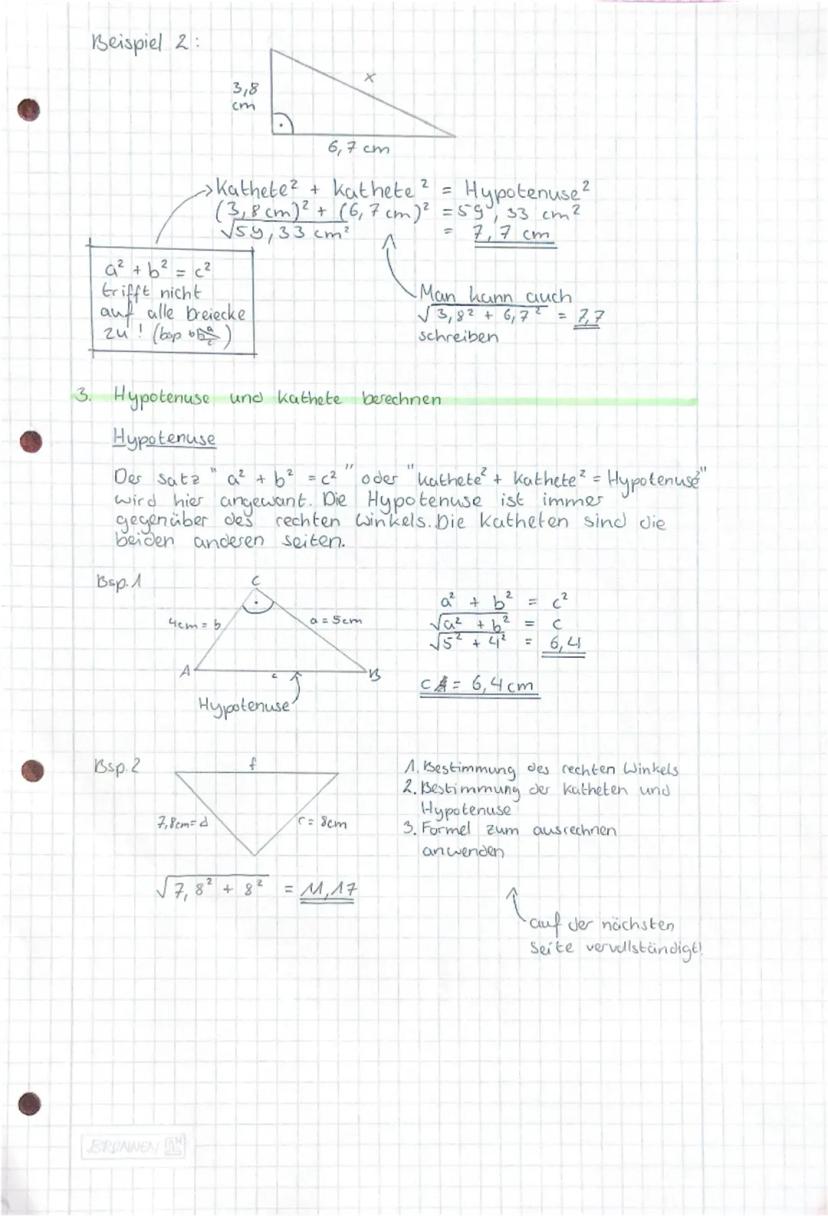 Beispiel 2:
x
3,8
cm
6,7 cm
Kathete² + Kathete² = Hypotenuse²
(3,8cm)² + (6,7cm)² = 59,33 cm²
√59,33 cm² = 7,7 cm
a² + b² = c²
trifft nicht
auf alle Dreiecke
zu! (bsp b a c)
Man kann auch
√3,8² + 6,7² = 7,7
schreiben
3. Hypotenuse und Kathete berechnen
Hypotenuse
Der Satz "a² + b² = c²" oder "Kathete² + Kathete² = Hypotenuse²"
wird hier angewant. Die Hypotenuse ist immer
gegenüber des rechten Winkels. Die Katheten sind die
beiden anderen Seiten.
Bsp. 1
C
4cm = b
a = 5cm
A
c
B
Hypotenuse
a² + b² = c²
√a² + b² = c
√5² + 4² = 6,4
c = 6,4cm
Bsp. 2
f
7,8cm = d
r = 8cm
√7,8² + 8² = 11,17
1. Bestimmung des rechten Winkels
2. Bestimmung der Katheten und
Hypotenuse
3. Formel zum ausrechnen
anwenden
auf der nächsten
Seite vervollständigt!
BRUNNEN